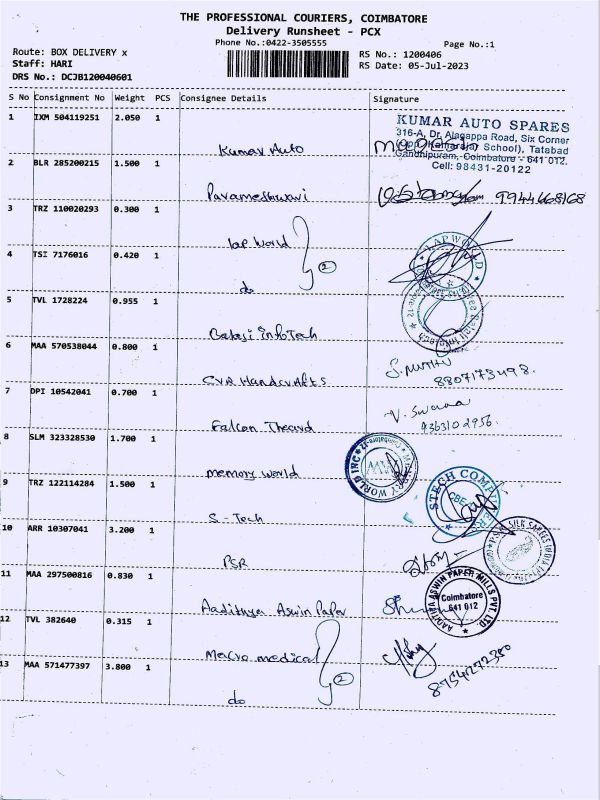 THE PROFESSIONAL COURIERS, COIMBATORE
Delivery Runsheet - PCX
Phone No.:0422-3505555
Page No.:1
Route: BOX DELIVERY x
Staff: HARI
DRS No.: DCJB120040601
RS No.: 1200406
RS Date: 05-Jul-2023
S No Consignment No Weight PCS Consignee Details Signature
1 IXM 504119251 2.050 1 Kumar Auto
KUMAR AUTO SPARES
316-A, Dr. Alagappa Road, Six Corner
School), Tatabad
Gandhipuram, Coimbatore - 641 012.
Cell: 98431-20122
2 BLR 285200215 1.500 1 Parameshwari 9944668168
3 TRZ 110020293 0.300 1 lap world
LAP WORLD
4 TSI 7176016 0.420 1 do 2
5 TVL 1728224 0.955 1 Balaji InfoTech
6 MAA 570538044 0.800 1 CVR Handcrafts
8807173498.
7 DPI 10542041 0.700 1 Falcon Thread
V. Swarna
9363102956.
8 SLM 323328530 1.700 1 memory world
MEMORY WORLD INC
9 TRZ 122114284 1.500 1 S-Tech
STECH COMPUTERS
CBE
10 ARR 10307041 3.200 1 PSR
PSR SILK SAREES INDIA
11 MAA 297500816 0.830 1 Aadithya Aswin Paper
AADITHYA ASWIN PAPER MILLS PVT. LTD
Coimbatore
641 012
12 TVL 382640 0.315 1 Macro medical
8754272380
13 MAA 571477397 3.800 1 do 2